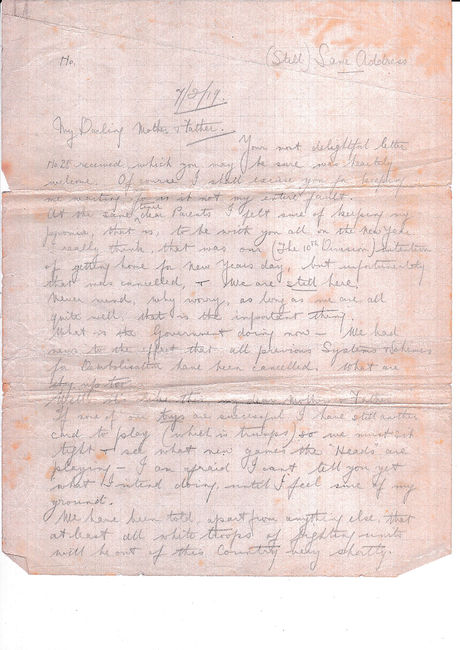 No.
(Still) Same Address
7/2/19.
My Darling Mother & Father.
Your most delightful letter
No 28 received which you may be sure was heartily
welcome. Of course I shall excuse you for keeping
me waiting for is it not my entire fault.
At the same time dear Parents I felt sure of keeping my
promise, that is, to be with you all on the New Year
I really think that was our (The 10th Division) intention
of getting home for New Years day, but unfortunately
that was cancelled, & We are still here!
Never mind, why worry, as long as we are all
quite well, that is the important thing.
What is the Government doing now - We had
news to the effect that all previous Systems & Schemes
for Demobilisation have been cancelled. What are
they up to?
Well it's like this my dear Mother & Father
if none of our are successful I have still another
card to play (which is trumps) so we must sit
tight & see what new games the "Heads" are
playing - I am afraid I can't tell you yet
what I intend doing until I feel sure of my
ground.
We have been told, apart from anything else, that
at least all white troops of fighting units
will be out of this Country very shortly.